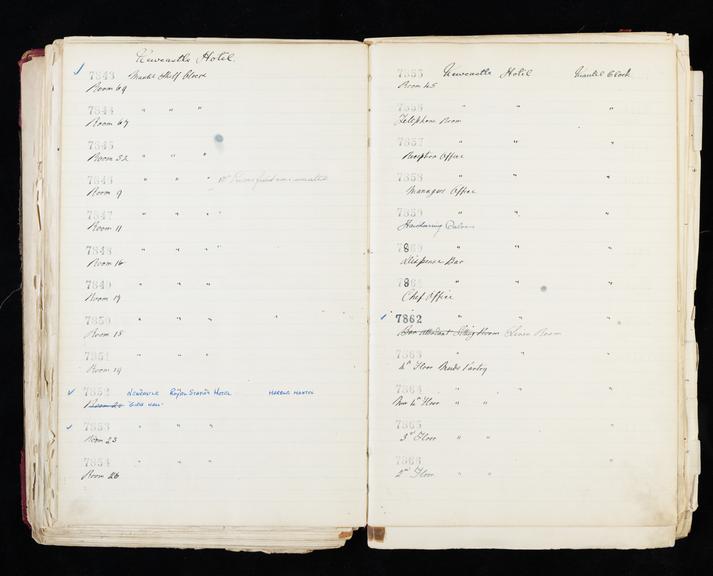 Newcastle Hotel.
7843 Marble Shelf Clock
Room 69
7844 " " "
Room 67
7845 " " "
Room 52
7846 " " "
Room 9
7847 " " "
Room 11
7848 " " "
Room 16
7849 " " "
Room 17
7850 " " "
Room 18
7851 " " "
Room 19
7852 Newcastle Royal Station Hotel Marble Mantel
7853 " " "
Room 23
7854 " " "
Room 26
7855 Newcastle Hotel Mantel Clock
Room 45
7856 " " "
Telephone Room
7857 " " "
Reception Office
7858 " " "
Managers Office
7859 " " "
7860 " " "
Dispense Bar
7861 " " "
Chef Office
7862 " " "
Bar Attendant Sitting Room Linen Room
7863 " " "
4th Floor Maids Pantry
7864 " " "
4th Floor " "
7865 " " "
3rd Floor " "
7866 " " "
2nd Floor " "